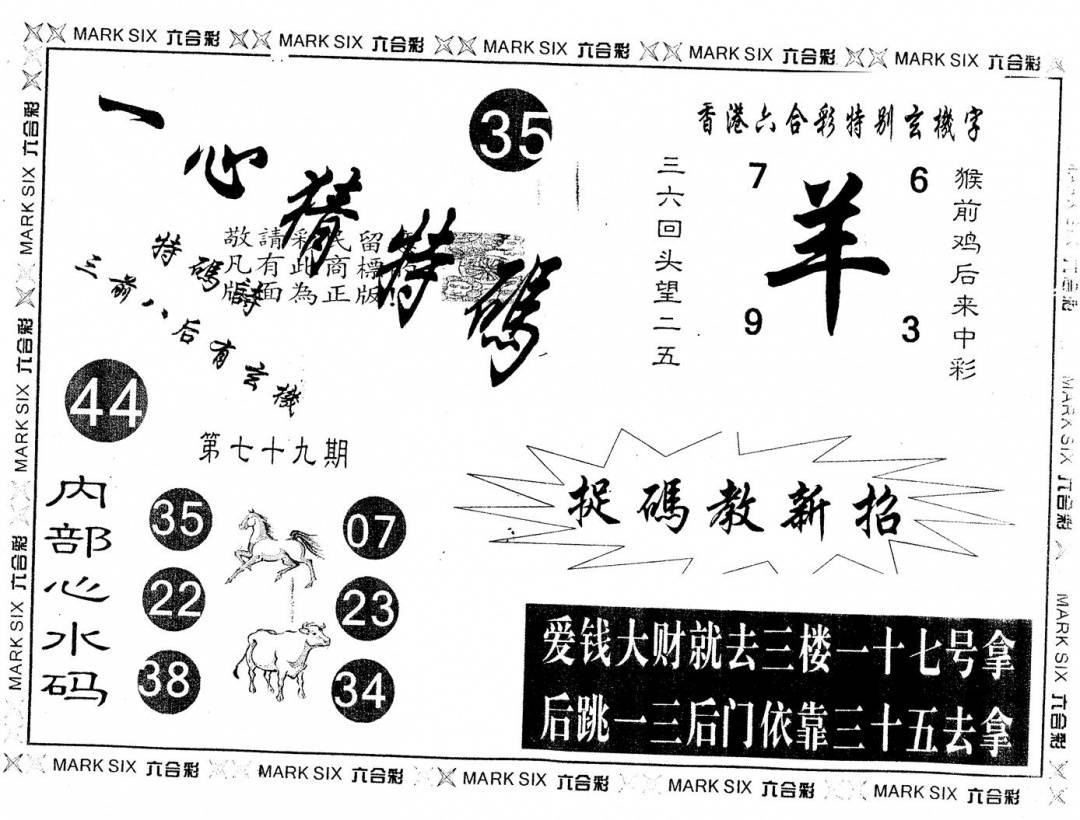 MARK SIX 六合彩 MARK SIX 六合彩 MARK SIX 六合彩 MARK SIX 六合彩 MARK SIX 六合彩
一心猜特碼
35
香港六合彩特别玄機字
三六回头望二五
7
6
羊
9
3
猴前鸡后来中彩
敬請彩民留
凡有此商標
版面為正版
特碼詩
三前八后有玄機
44
第七十九期
内部心水码
35
07
22
23
38
34
捉碼教新招
爱钱大财就去三楼一十七号拿
后跳一三后门依靠三十五去拿
MARK SIX 六合彩 MARK SIX 六合彩 MARK SIX 六合彩
MARK SIX 六合彩 MARK SIX 六合彩
MARK SIX 六合彩 MARK SIX 六合彩 MARK SIX 六合彩 MARK SIX 六合彩 MARK SIX 六合彩